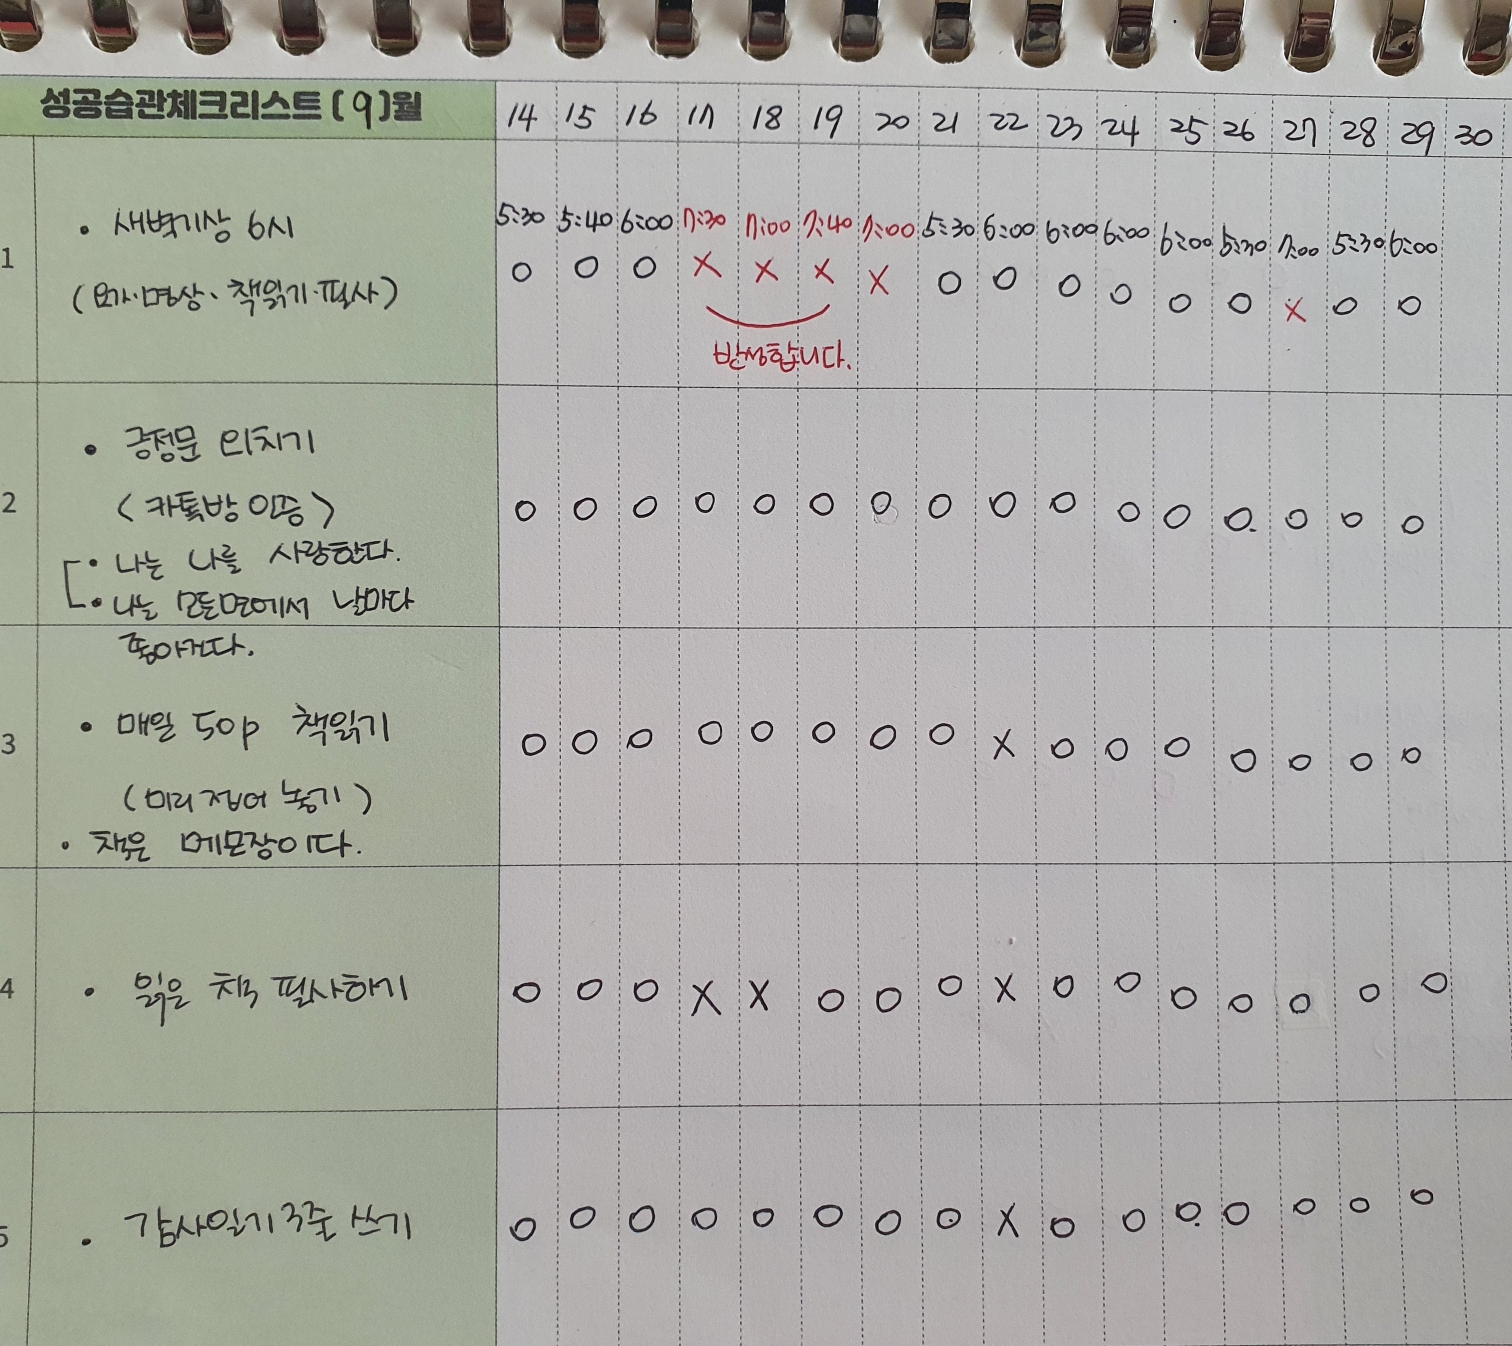 성공습관체크리스트 (9)월 14 15 16 17 18 19 20 21 22 23 24 25 26 27 28 29 30
1
• 새벽기상 6시
5:30 5:40 6:00 7:30 7:00 7:40 7:00 5:30 6:00 6:00 6:00 6:00 5:30 7:00 5:30 6:00
(요가·명상·책읽기·필사)
O O O X X X X O O O O O O X O O
반성합니다.
2
• 긍정문 외치기
<카톡방 인증>
O O O O O O O O O O O O O O O O
• 나는 나를 사랑한다.
• 나는 모든면에서 날마다
좋아진다.
3
• 매일 50p 책읽기
O O O O O O O O X O O O O O O O
(미리 접어 놓기)
• 책은 메모장이다.
4
• 읽은 책 필사하기
O O O X X O O O X O O O O O O O
5
• 감사일기 3줄 쓰기
O O O O O O O O X O O O O O O O